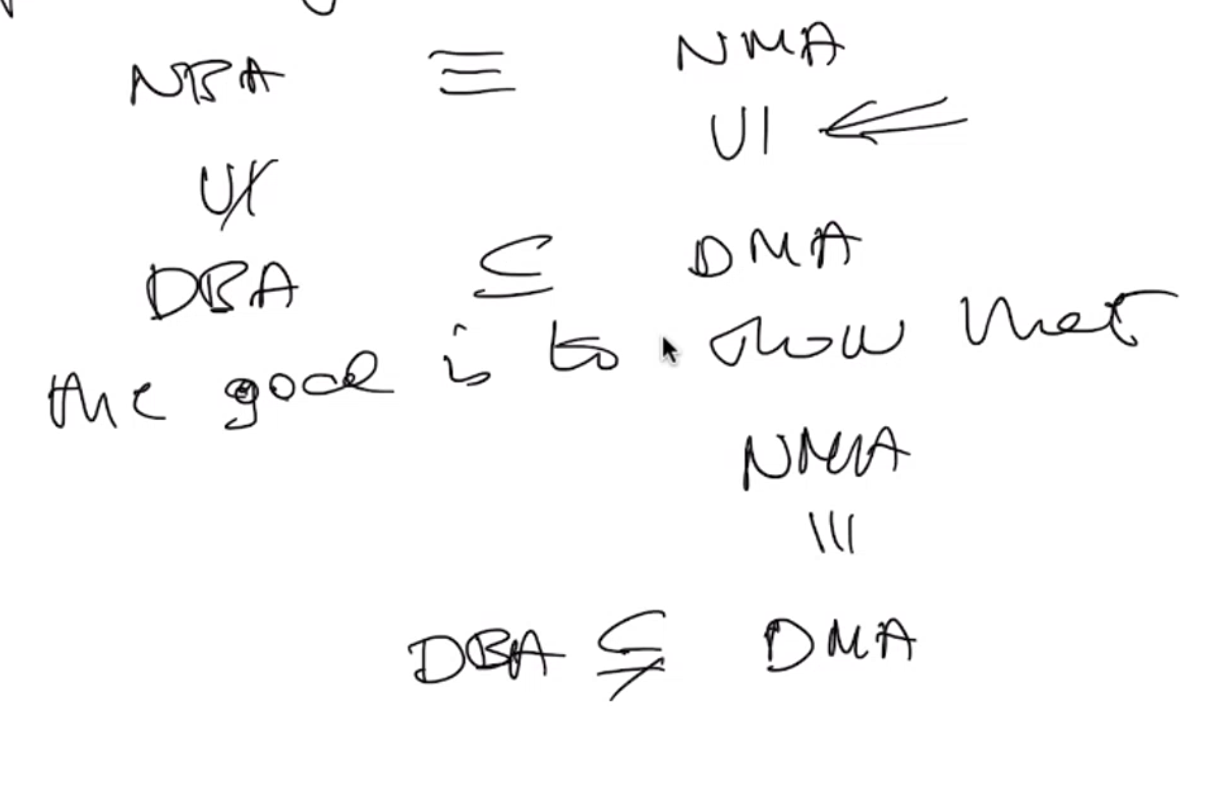 NBA ≡ NMA
U∤ U|
DBA ⊆ DMA
the goal is to show that
NMA
|||
DBA ⊊ DMA